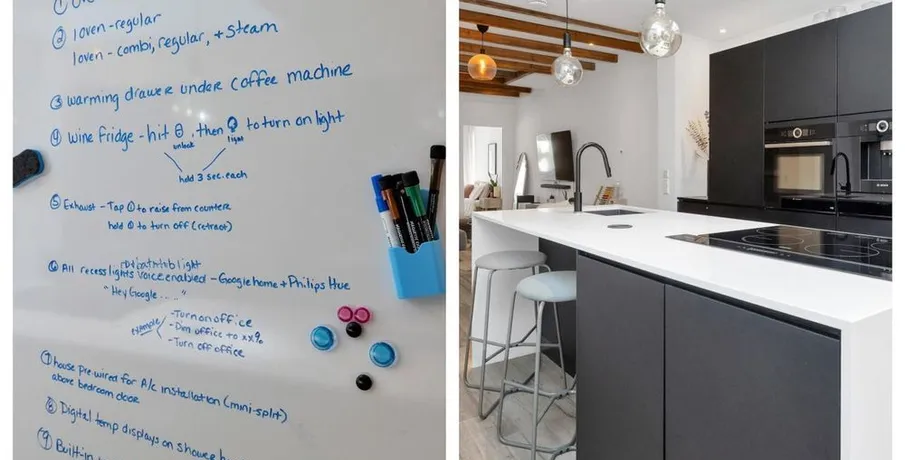 ② 1 oven-regular
1 oven-combi, regular, + steam
③ warming drawer under coffee machine
④ wine fridge - hit , then to turn on light
unlock light
hold 3 sec. each
⑤ Exhaust - Tap ① to raise from counter
hold ① to turn off (retract)
⑥ All recess lights voice enabled - Google home + Philips Hue
"Hey Google ....."
Example - Turn on office
- Dim office to xx%
- Turn off office
⑦ house pre-wired for A/c installation (mini-split)
above bedroom door
⑧ Digital temp displays on shower
⑨ Built-in